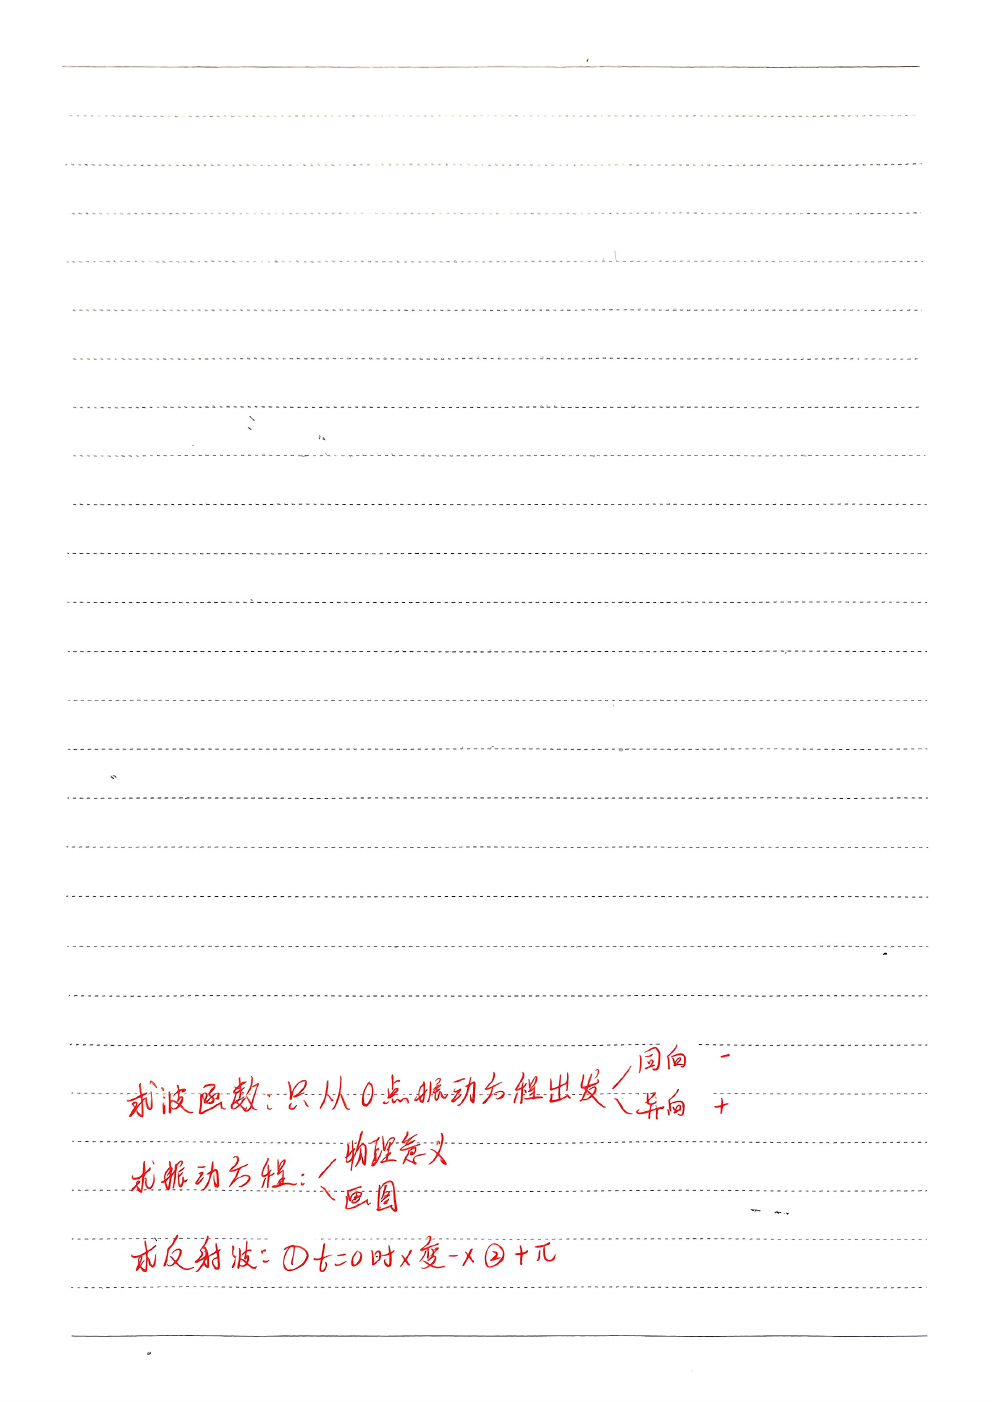 求波函数：只从0点振动方程出发 同向 -
异向 +
求振动方程： 物理意义
画图
求反射波：①t=0时x变-x ②+π